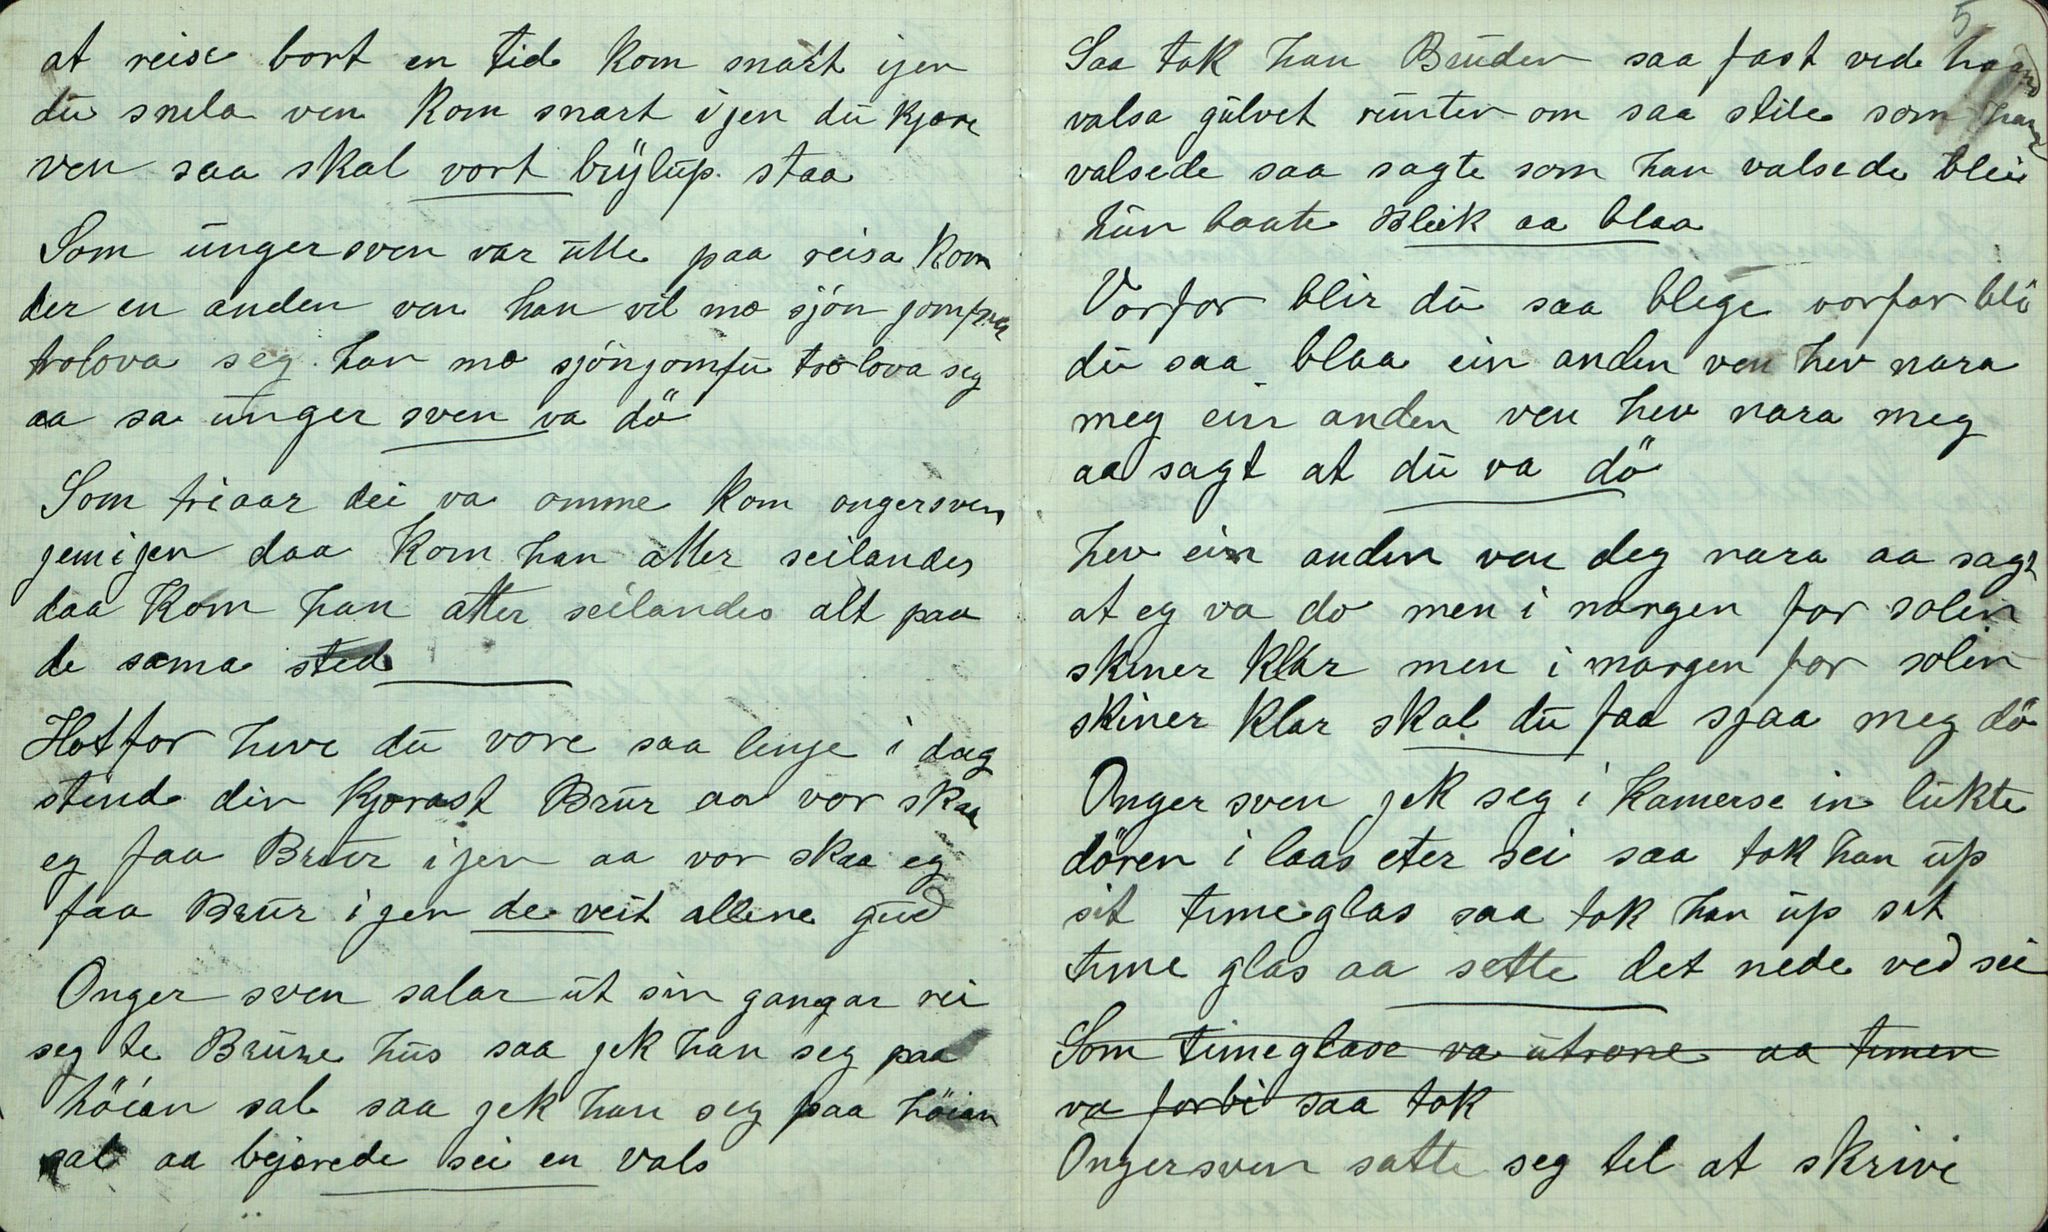 at reise bort en tid kom snart ijen
du snela ven kom snart ijen du kjære
ven saa skal vort bryjlup staa
Som ungersven var utte paa reisa kom
der en anden ven han vil mæ sjön jomfru
trolova seg han mæ sjönjomfu trolova seg
aa sa unger sven va dö
Som tri aar dei va omme kom ongersven
jemijen daa kom han atter seilandes
daa kom han atter seilandes alt paa
de sama sted
Hotfor heve du vore saa lenje i dag
stend din kjærast Brur aa vor skaa
eg faa Brur ijen aa vor skaa eg
faa Brur ijen de veit allene gud
Onger sven salar ut sin gangar rei
seg te Brure hus saa jek han seg paa
höian sal saa jek han seg paa höian
sal aa bejærede sei en vals
5
Saa tok han Bruden saa fast ved haand
valsa gulvet runten om saa stile som han
valsede saa sagte som han valsede blei
hun baate Bleik aa blaa
Vorfor blir du saa blege vorfor bli
du saa blaa ein anden ven hev nara
meg ein anden ven hev nara meg
aa sagt at du va dö
hev ein anden ven deg nara aa sagt
at eg va do men i margen for solin
skiner klar men i margen for solin
skiner klar skal du faa sjaa meg dö
Onger sven jek seg i kamerse in lukte
dören i laas eter sei saa tok han up
sit timeglas saa tok han up sit
time glas aa sette det nede ved sei
Som timeglase va utrane aa timen
va forbi saa tok
Ongersven satte seg tel at skrive